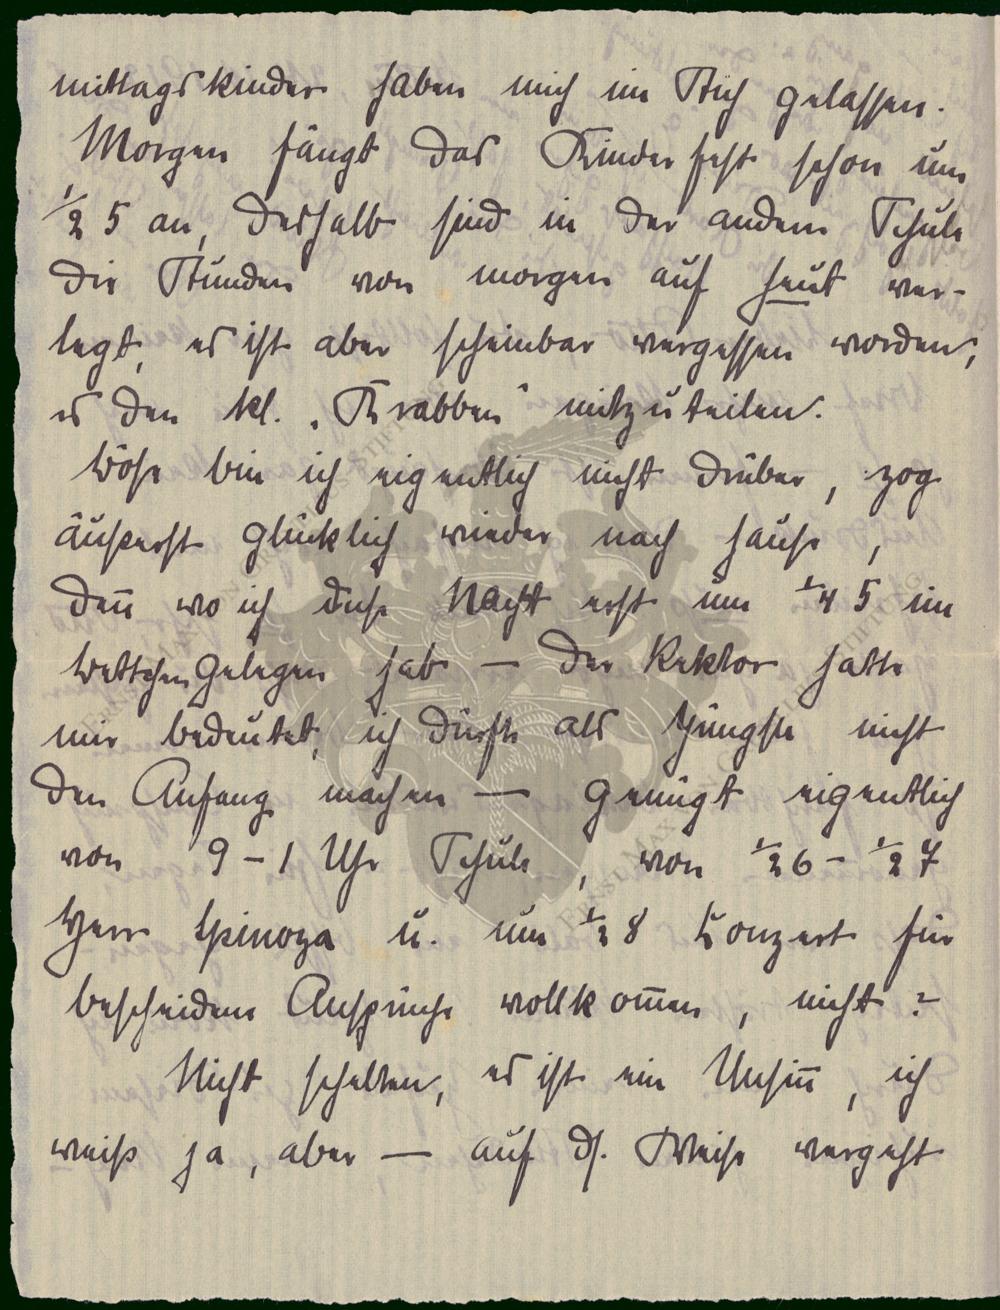 mittagskinder haben mich im Stich gelassen.
Morgen fängt das Kinderfest schon um
1/2 5 an, deshalb sind in der andern Schule
die Stunden von morgen auf heut ver-
legt, es ist aber scheinbar vergessen worden,
es den kl. „Krabben“ mitzuteilen.
Böse bin ich eigentlich nicht drüber, zog
äußerst glücklich wieder nach hause,
den̅ wo ich diese Nacht erst um 1/4 5 im
Bettchen gelegen hab — der Rektor hatte
mir bedeutet, ich dürfte als Jüngste nicht
den Anfang machen — genügt eigentlich
von 9–1 Uhr Schule, von 1/2 6 – 1/2 7
Herr Spinoza u. um 1/2 8 Konzert für
bescheidene Ansprüche vollkom̅en, nicht?
Nicht schelten, es ist ein Unsin̅, ich
weiß ja, aber — auf ds. Weise vergeht